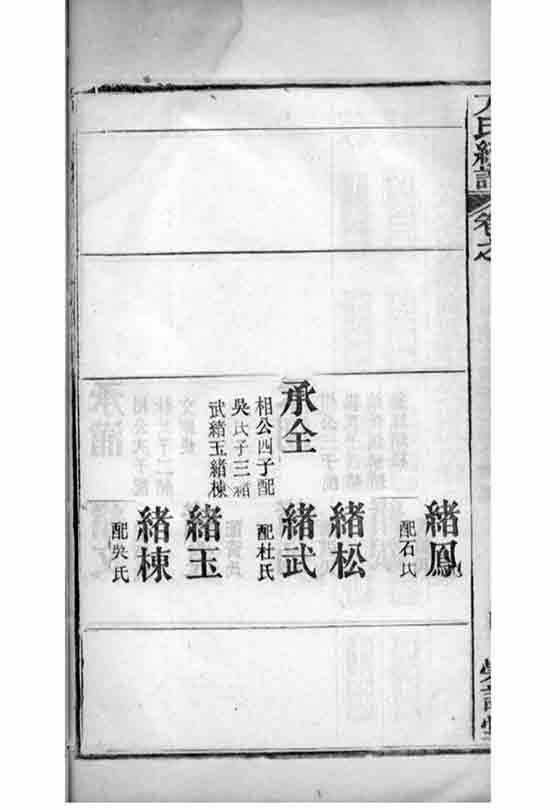 氏續譜 卷之
承全
相公四子配
吳氏子三緒
武緒玉緒棟
緒鳳
配石氏
緒松
緒武
配杜氏
緒玉
緒棟
配吳氏